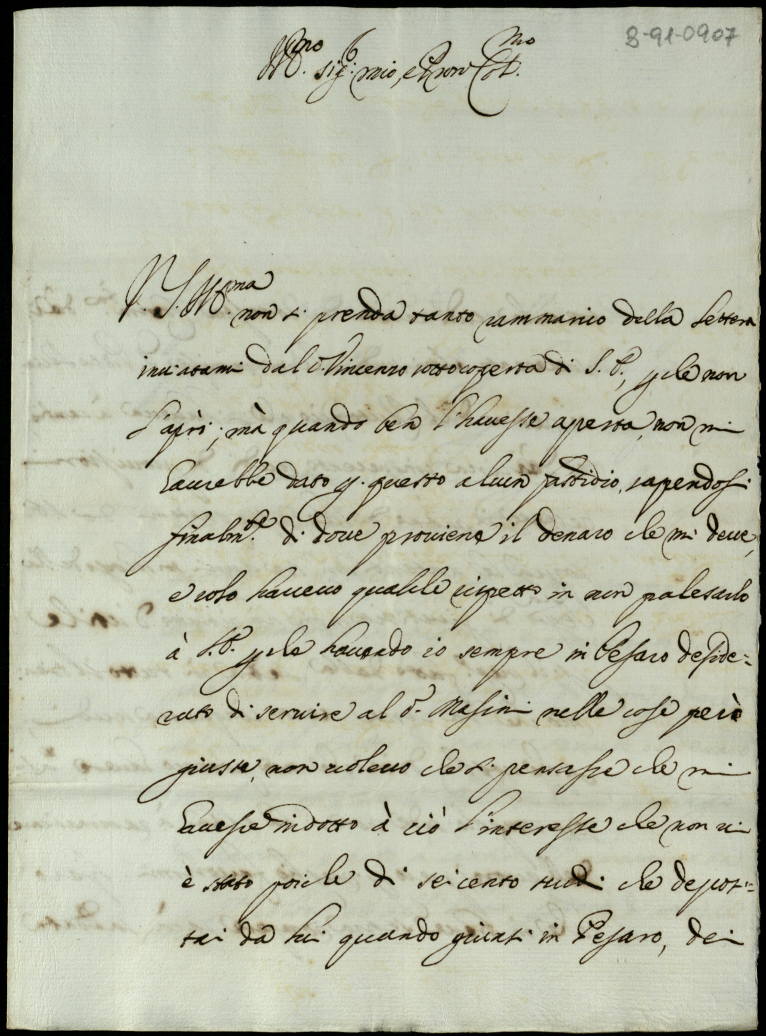 8-91-0907
Ill.mo Sig.r mio, e Pron Col.mo
V. S. Ill.ma non si prenda tanto rammarico della lettera
inviatami dal S.r Vincenzo sotto coperta di S. P., p che non
l'aprì; mà quando ben l'havesse aperta, non mi
haurebbe dato p. questo alcun fastidio, sapendosi
finalm.te di dove proviene il denaro che mi deve,
e solo havevo qualche rispetto in non palesarlo
à S.P. p che havendo io sempre in Pesaro deside=
rato di servire al S.r Masini nelle cose però
giuste, non volevo che si pensasse che mi
havesse indotto à ciò l'interesse che non vi
è stato poiche di seicento scudi che deposi=
tai da lui quando giunsi in Pesaro, dei